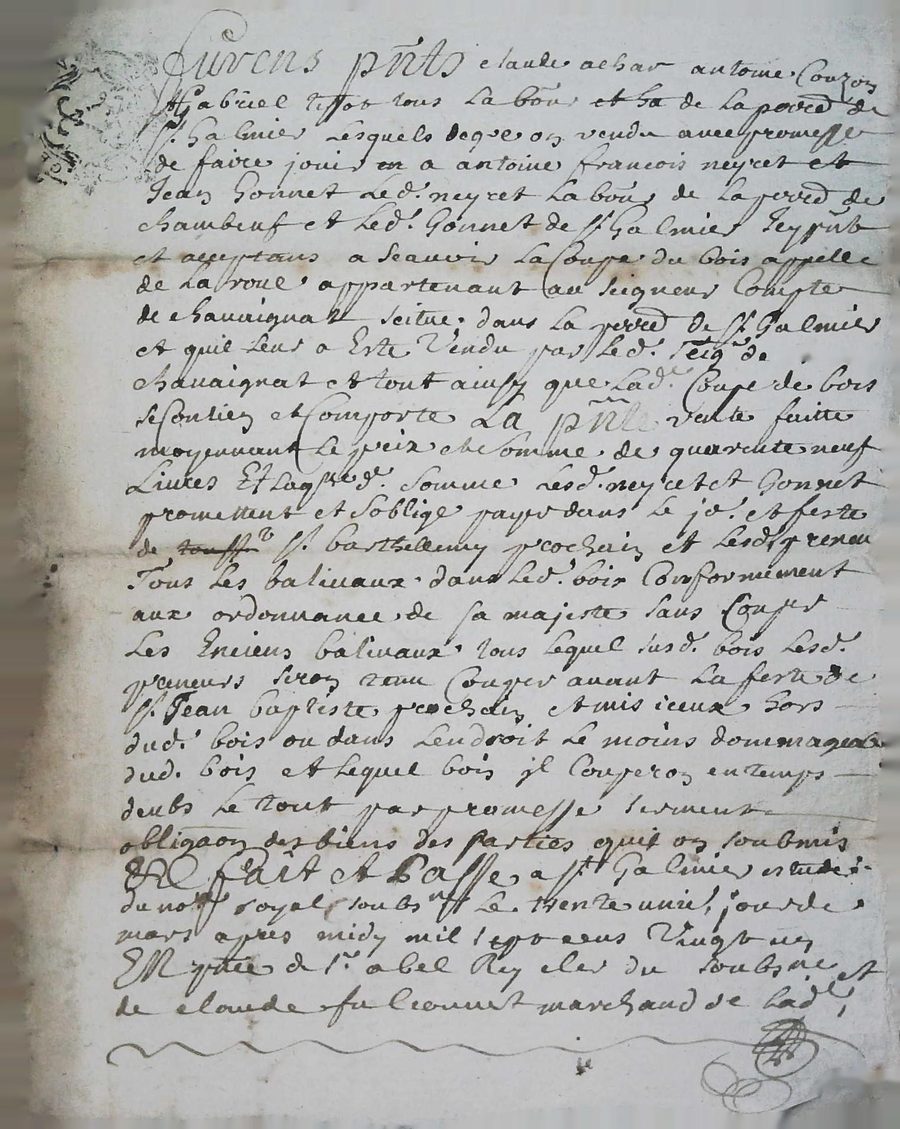 furens pñts claude achar antoine Couzon
Gabriel tissot tous Labour et ha de La parred de
st. Galmier Lesquels de gre on vendu avec promesse
de faire jouir a antoine francois neyret et
Jean Gonnet Led. neyret Labour de La parred de
chambeuf et Led. Gonnet de st. Galmier Icy pñts
et acceptans a scavoir La Coupe du bois appelle
de La roue appartenant au seigneur Compte
de chavaignat scitue dans La parred de st. Galmier
et quil Leur a Este Vendu par Led. seigr de
chavaignat et tout ainsy que Lad. Coupe de bois
se Contien et Comporte La pñte vente faitte
moyennant Le prix et Somme de quarente neuf
Livres Et Laquelle d. Somme Lesd. neyret et Gonnet
promettent et soblige payer dans Le jo. et feste
de st. barthellemy prochain et Lesd. preneu
Tous Les balivaux dans Led. bois Conformement
aux ordonnance de sa majeste sans Couper
Les Enciens balivaux tous Lequel susd. bois Lesd.
preneurs seron tenu Couper avant La feste de
st. Jean baptiste prochain et mis iceux hors
dud. bois ou dans Lendroit Le moins dommageable
dud. bois et Lequel bois jl Couperon en temps
deubs Le tout par promesse serment
obligaon des biens des parties quil on soubmis
fait et Passe a st Galmier estude
du nore royal soubsne Le trente unie. jour de
mars apres midy mil sept cens Vingt un
EN pñce de sr. abel Rey cler du soubsne et
de claude fulconnet marchand de Lad.